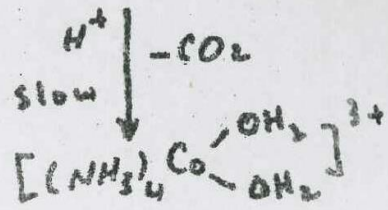 H⁺
-CO₂
slow
[(NH₃)₄ Co OH₂ OH₂]³⁺